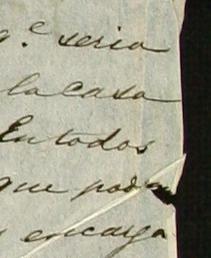 q.e seria
la casa
En todos
que poda
encarga